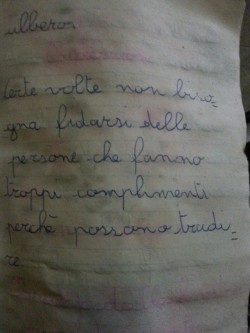 ulbero.
Certe volte non biso=
gna fidarsi delle
persone che fanno
troppi complimenti
perchè possono tradi=
re